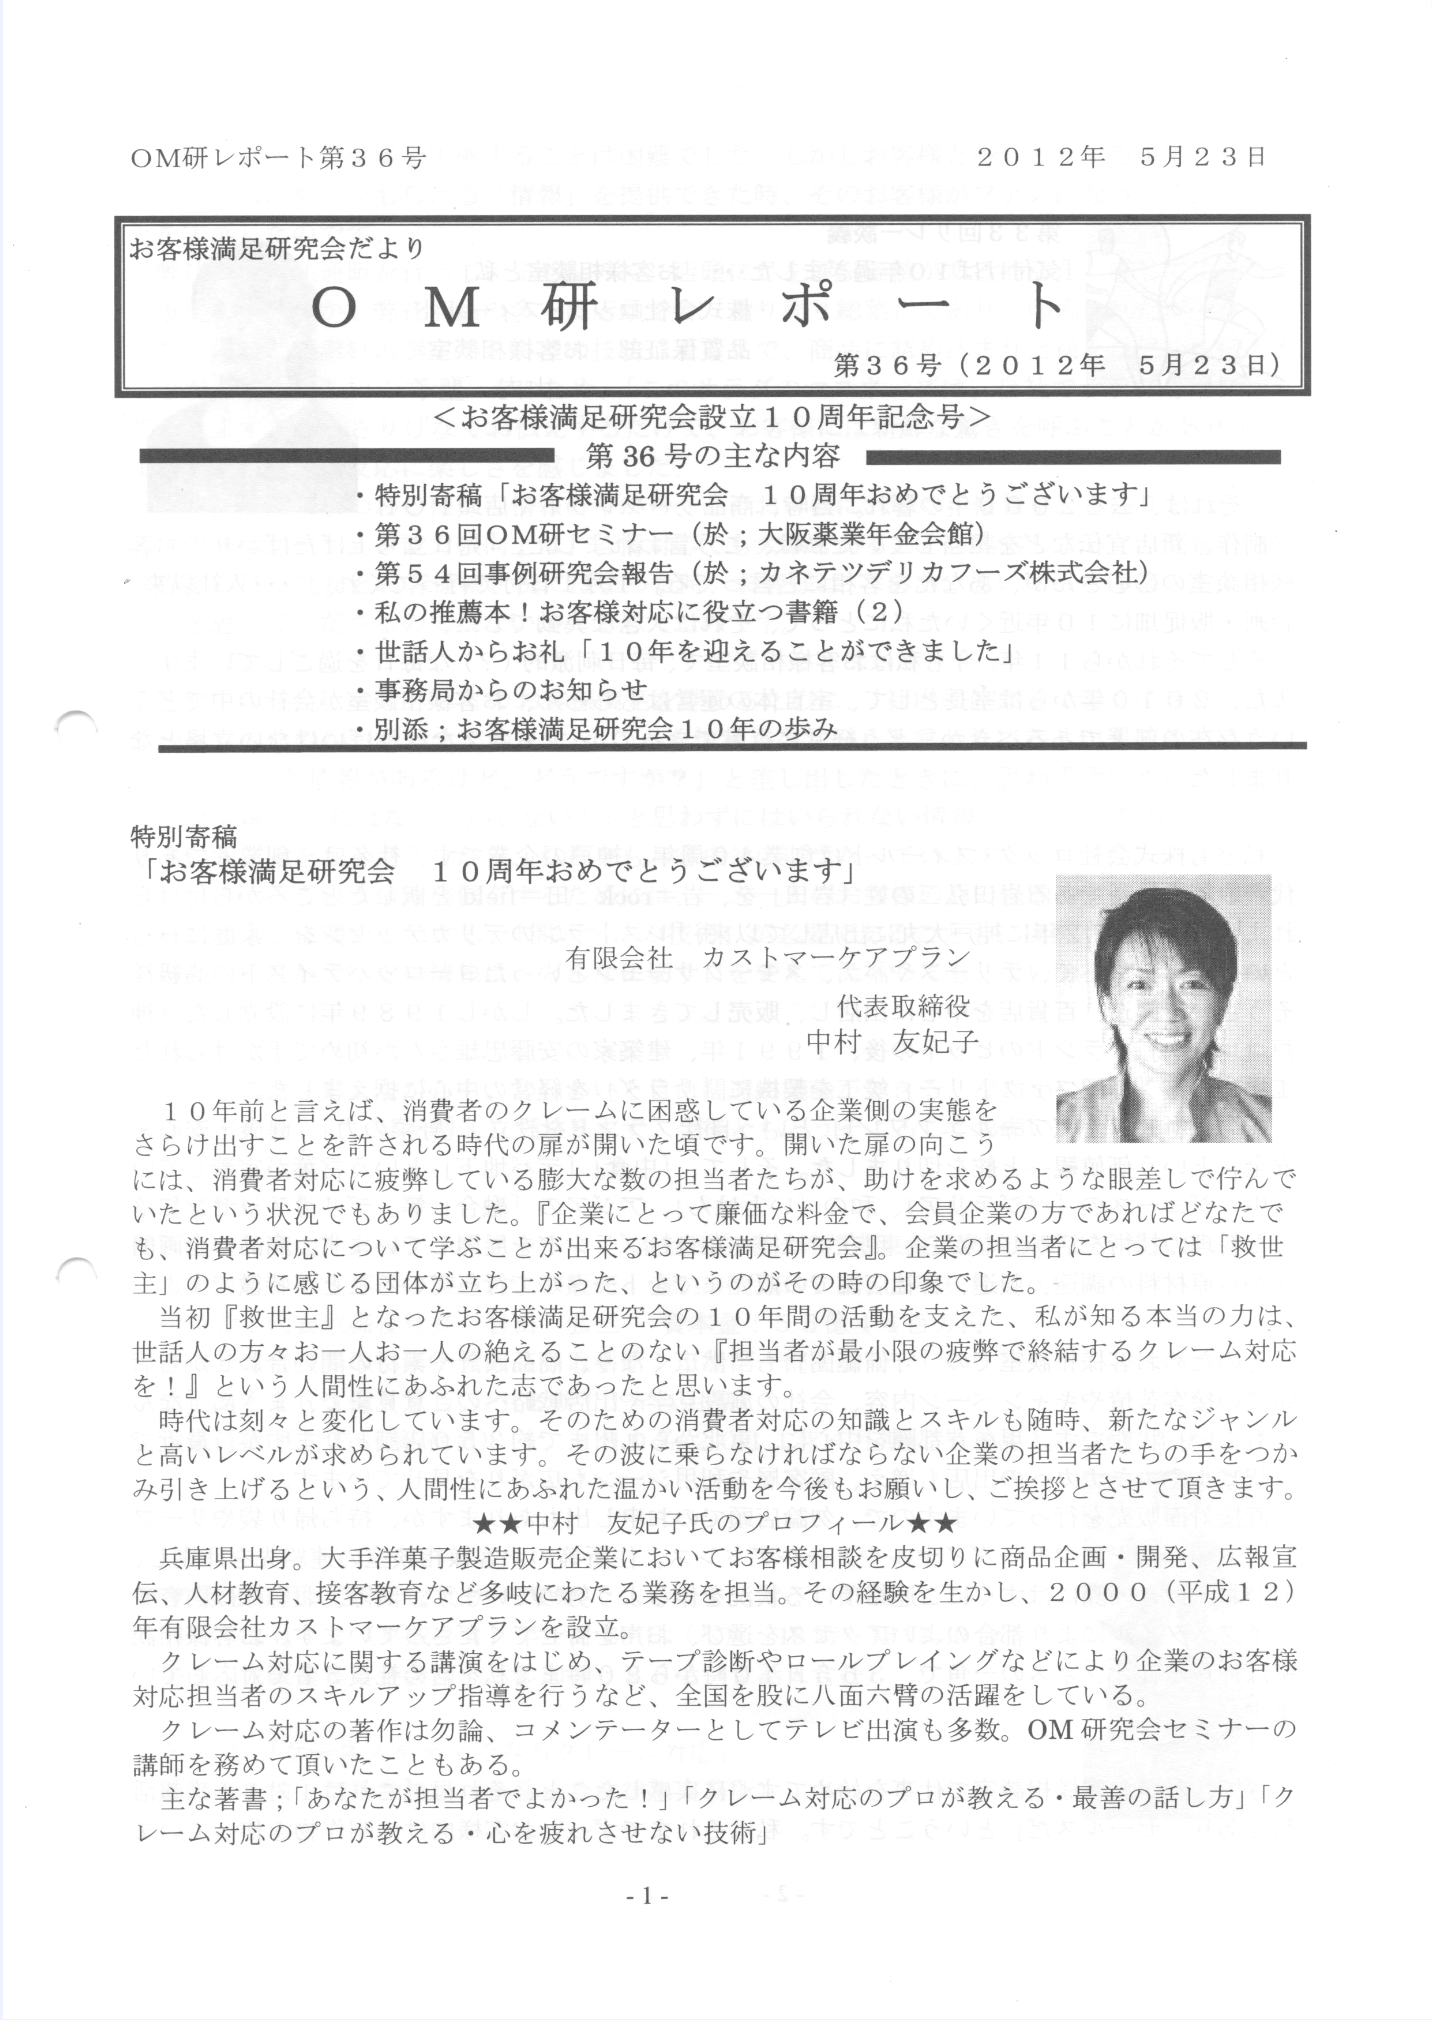 OM研レポート第３６号　２０１２年　５月２３日
お客様満足研究会だより
Ｏ　Ｍ　研　レ　ポ　ー　ト
第３６号（２０１２年　５月２３日）
＜お客様満足研究会設立１０周年記念号＞
第 36 号の主な内容
・特別寄稿「お客様満足研究会　１０周年おめでとうございます」
・第３６回OM研セミナー（於；大阪薬業年金会館）
・第５４回事例研究会報告（於；カネテツデリカフーズ株式会社）
・私の推薦本！お客様対応に役立つ書籍（２）
・世話人からお札「１０年を迎えることができました」
・事務局からのお知らせ
・別添；お客様満足研究会１０年の歩み
特別寄稿
「お客様満足研究会　１０周年おめでとうございます」
有限会社　カストマーケアプラン
代表取締役
中村　友妃子
１０年前と言えば、消費者のクレームに困惑している企業側の実態を
さらけ出すことを許される時代の扉が開いた頃です。開いた扉の向こう
には、消費者対応に疲弊している膨大な数の担当者たちが、助けを求めるような眼差しで佇んで
いたという状況でもありました。『企業にとって廉価な料金で、会員企業の方であればどなたで
も、消費者対応について学ぶことが出来るお客様満足研究会』。企業の担当者にとっては「救世
主」のように感じる団体が立ち上がった、というのがその時の印象でした。
当初『救世主』となったお客様満足研究会の１０年間の活動を支えた、私が知る本当の力は、
世話人の方々お一人お一人の絶えることのない『担当者が最小限の疲弊で終結するクレーム対応
を！』という人間性にあふれた志であったと思います。
時代は刻々と変化しています。そのための消費者対応の知識とスキルも随時、新たなジャンル
と高いレベルが求められています。その波に乗らなければならない企業の担当者たちの手をつか
み引き上げるという、人間性にあふれた温かい活動を今後もお願いし、ご挨拶とさせて頂きます。
★★中村　友妃子氏のプロフィール★★
兵庫県出身。大手洋菓子製造販売企業においてお客様相談を皮切りに商品企画・開発、広報宣
伝、人材教育、接客教育など多岐にわたる業務を担当。その経験を生かし、２０００（平成１２）
年有限会社カストマーケアプランを設立。
クレーム対応に関する講演をはじめ、テープ診断やロールプレイングなどにより企業のお客様
対応担当者のスキルアップ指導を行うなど、全国を股に八面六臂の活躍をしている。
クレーム対応の著作は勿論、コメンテーターとしてテレビ出演も多数。OM 研究会セミナーの
講師を務めて頂いたこともある。
主な著書；「あなたが担当者でよかった！」「クレーム対応のプロが教える・最善の話し方」「ク
レーム対応のプロが教える・心を疲れさせない技術」
- 1 -